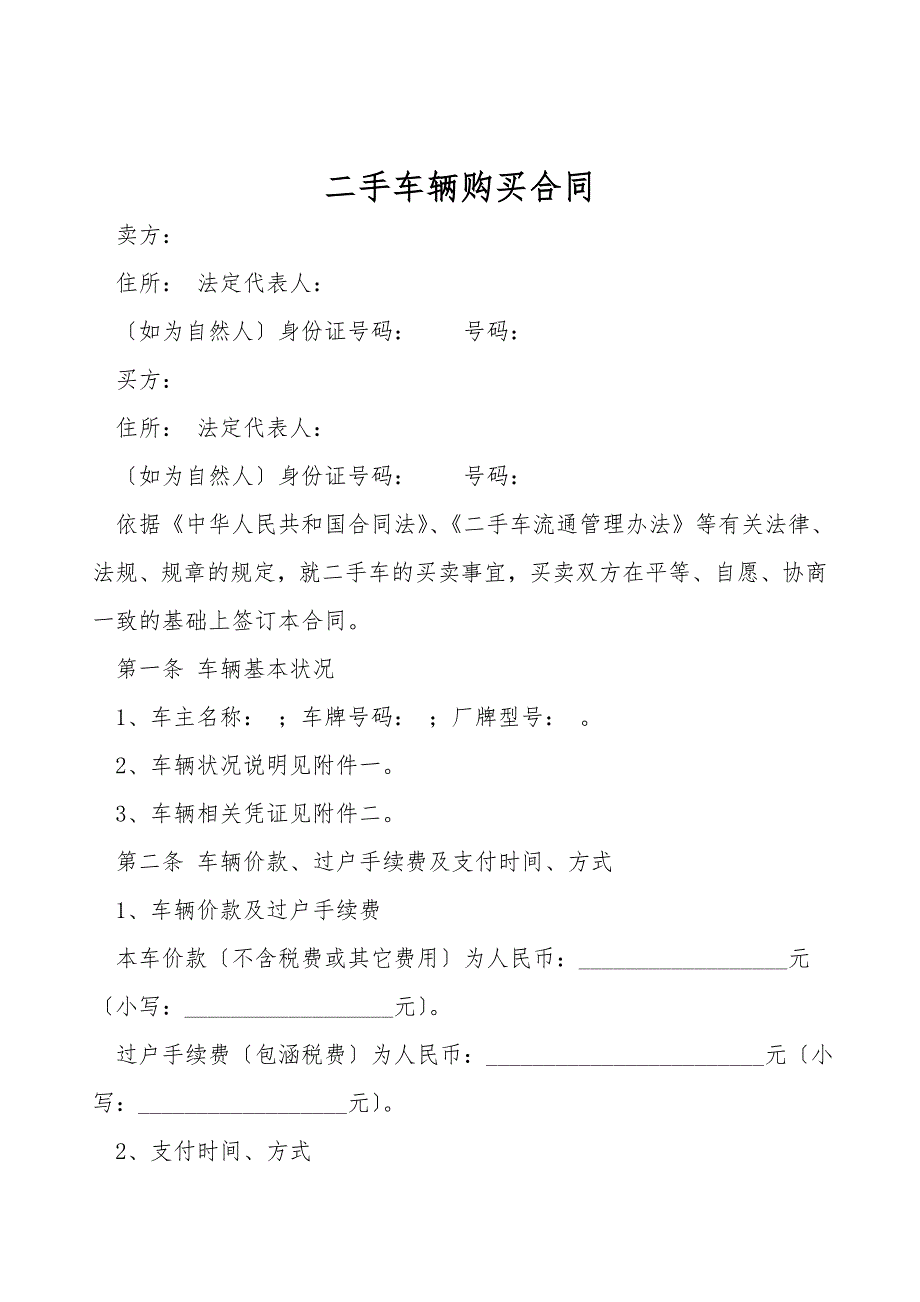 二手车辆购买合同
卖方：
住所： 法定代表人：
〔如为自然人〕身份证号码： 号码：
买方：
住所： 法定代表人：
〔如为自然人〕身份证号码： 号码：
依据《中华人民共和国合同法》、《二手车流通管理办法》等有关法律、
法规、规章的规定，就二手车的买卖事宜，买卖双方在平等、自愿、协商
一致的基础上签订本合同。
第一条 车辆基本状况
1、车主名称： ；车牌号码： ；厂牌型号： 。
2、车辆状况说明见附件一。
3、车辆相关凭证见附件二。
第二条 车辆价款、过户手续费及支付时间、方式
1、车辆价款及过户手续费
本车价款〔不含税费或其它费用〕为人民币：__________________元
〔小写：__________________元〕。
过户手续费〔包涵税费〕为人民币：________________________元〔小
写：__________________元〕。
2、支付时间、方式